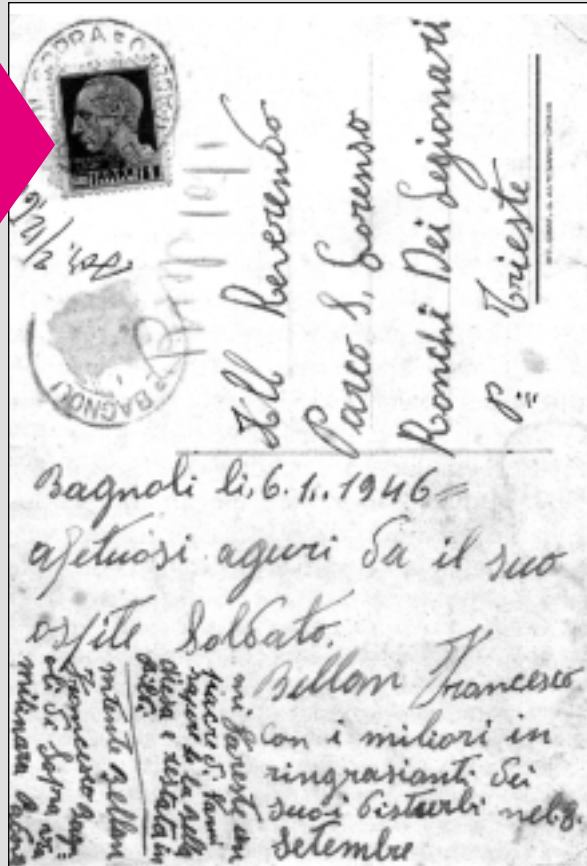 BAGNOLI
All Reverendo
Parco S. Lorenso
Ronchi Dei Legionari
p. Trieste
Bagnoli li, 6. 1.. 1946=
afetuosi aguri da il suo
ospite Soldato.
Bellon Francesco
con i miliori in
ringrasianti dei
suoi disturbi nel 8.
Setembre
mi fareste un
piacere di farmi
la bella
chiesa e restata in
mitente Bellon
Francesco
di Sopra via